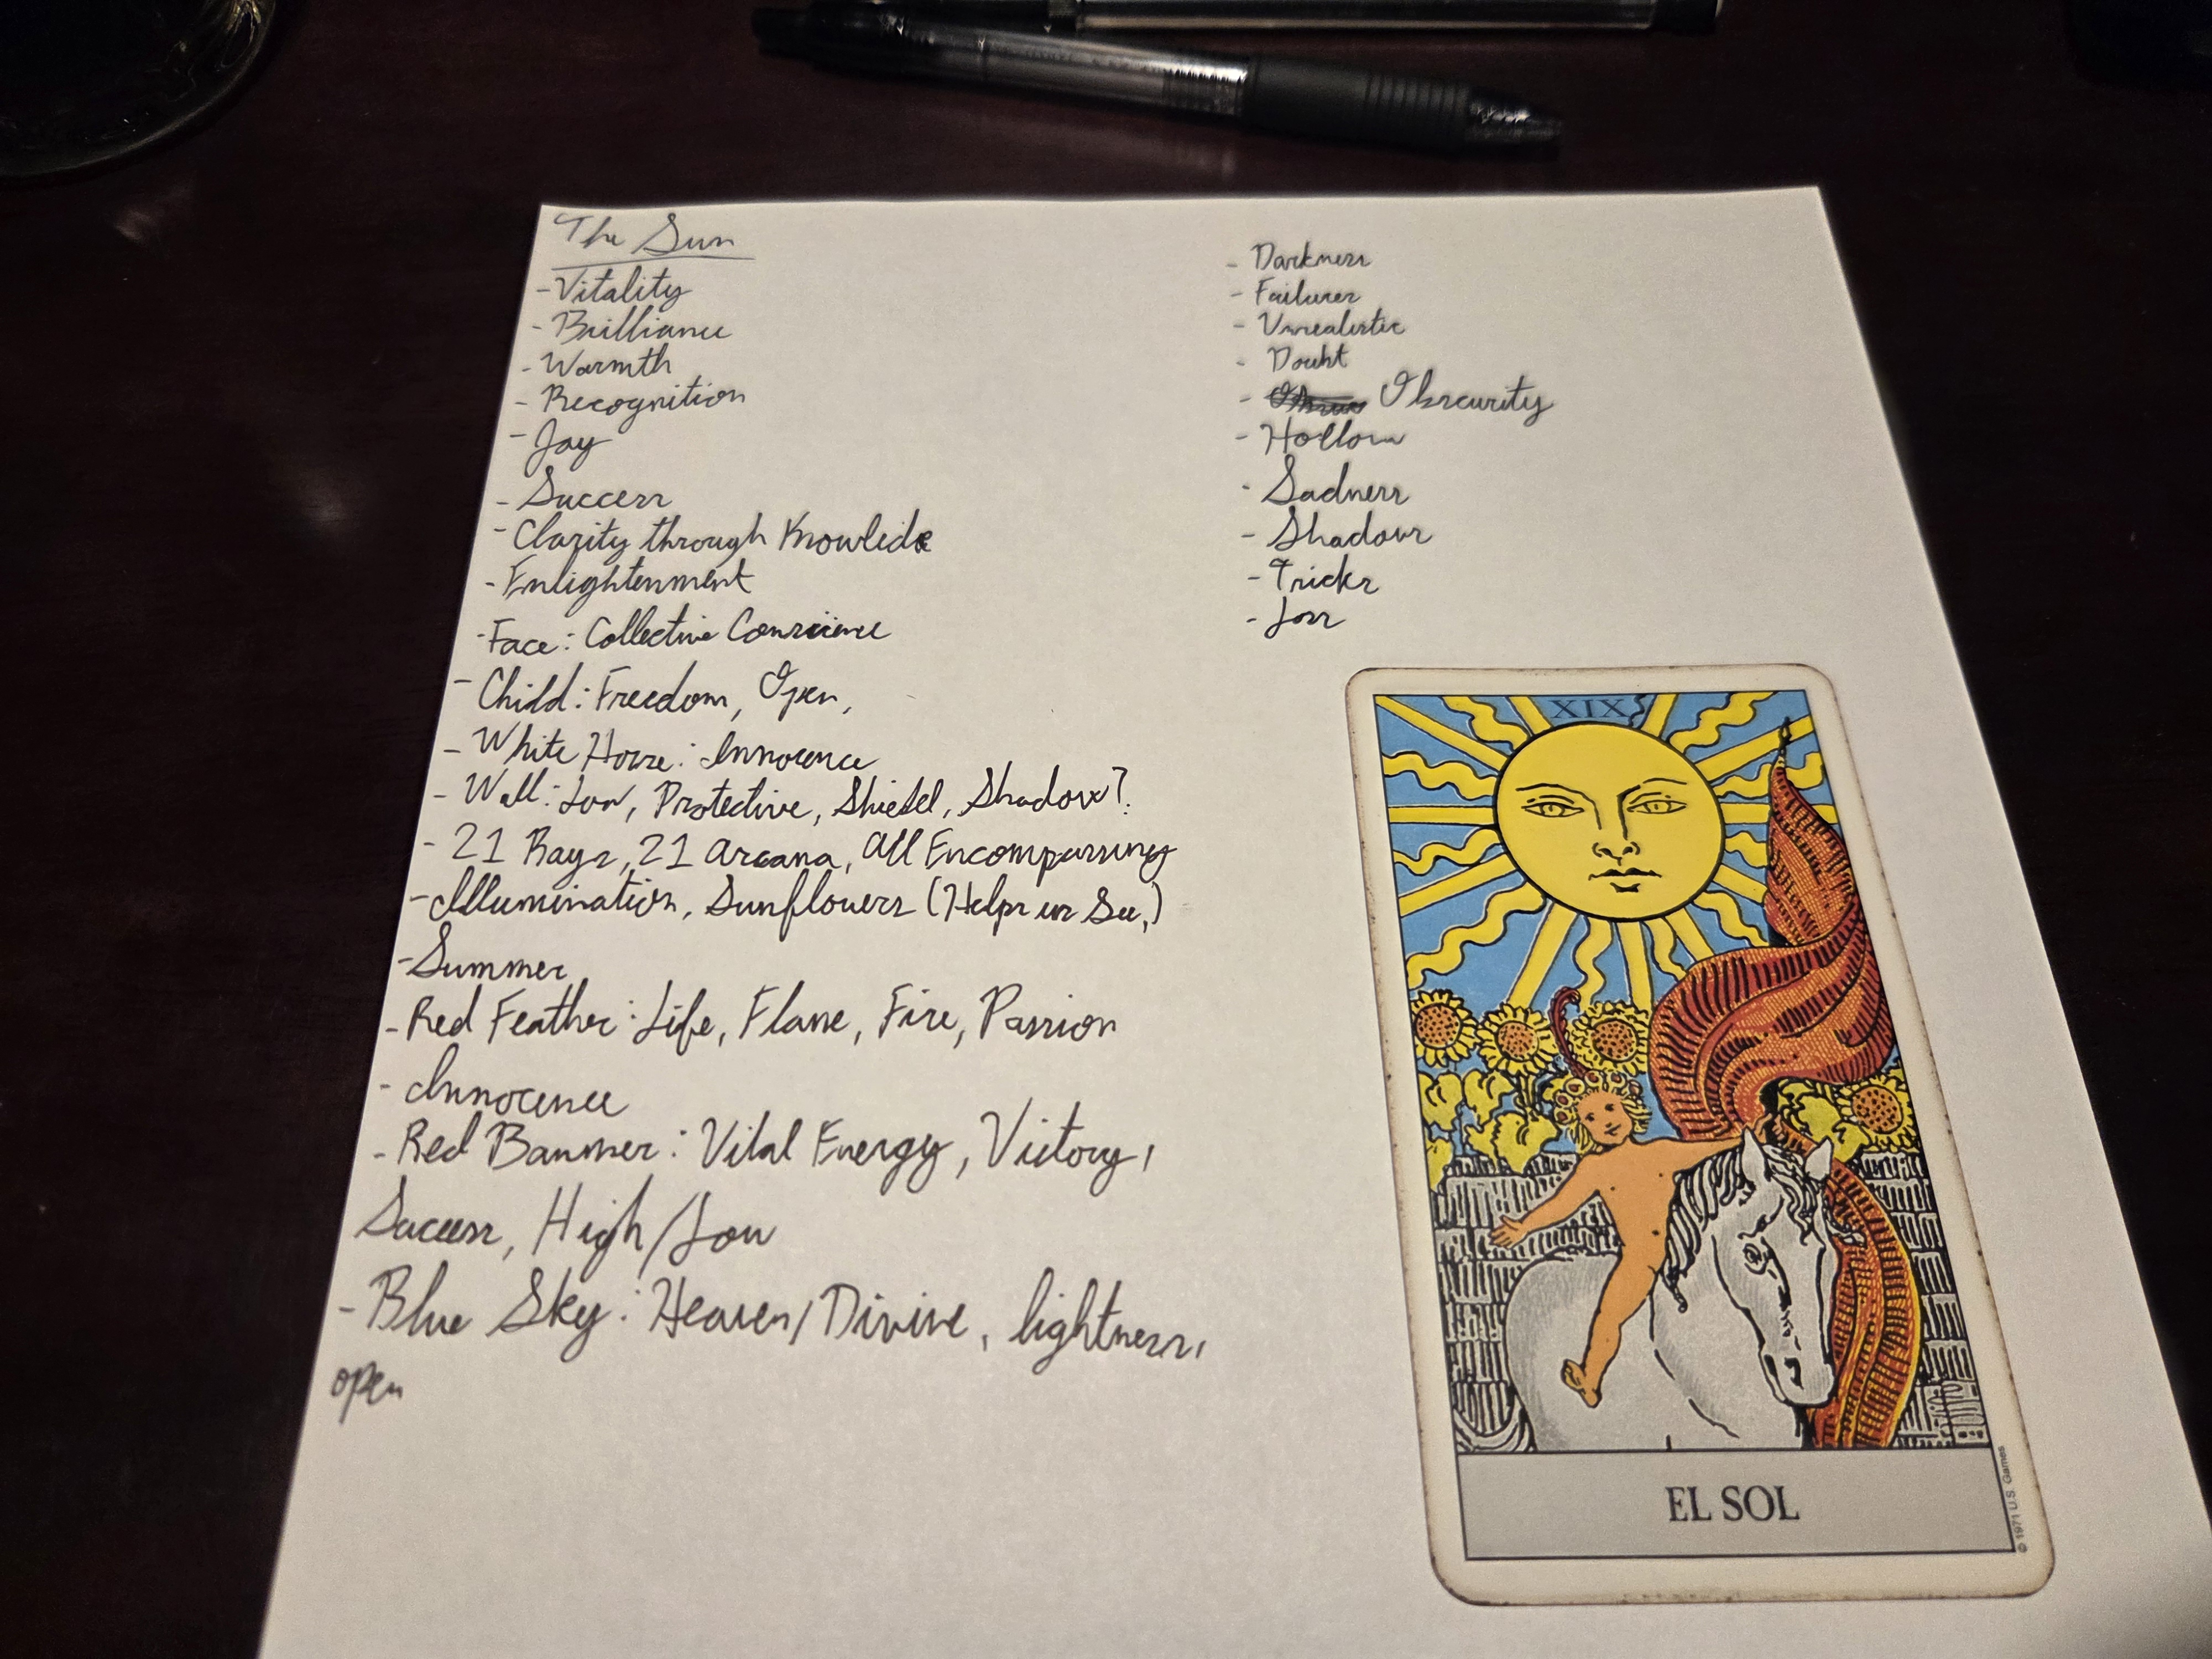 The Sun
- Vitality
- Brilliance
- Warmth
- Recognition
- Joy
- Success
- Clarity through Knowlide
- Enlightenment
- Face: Collective Conscience
- Child: Freedom, Open,
- White Horse: Innocence
- Wall: Low, Protective, Shield, Shadow?
- 21 Rays, 21 Arcana, All Encompassing
- Illumination, Sunflowers (Helps us See,)
- Summer
- Red Feather: Life, Flame, Fire, Passion
- Innocence
- Red Banner: Vital Energy, Victory,
Success, High/Low
- Blue Sky: Heaven/Divine, lightness,
open
- Darkness
- Failures
- Unrealistic
- Doubt
- Obscurity
- Hollow
- Sadness
- Shadows
- Tricks
- Loss
XIX
EL SOL
© 1971 U.S. Games